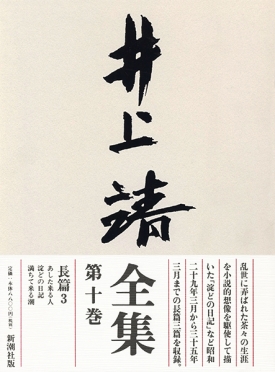 井上靖
全集
第十巻
乱世に弄ばれた茶々の生涯
を小説的想像を駆使して描
いた『淀どの日記』など昭和
二十九年三月から三十五年
三月までの長篇三篇を収録。
長篇3
あした来る人
淀どの日記
満ちて来る潮
新潮社版